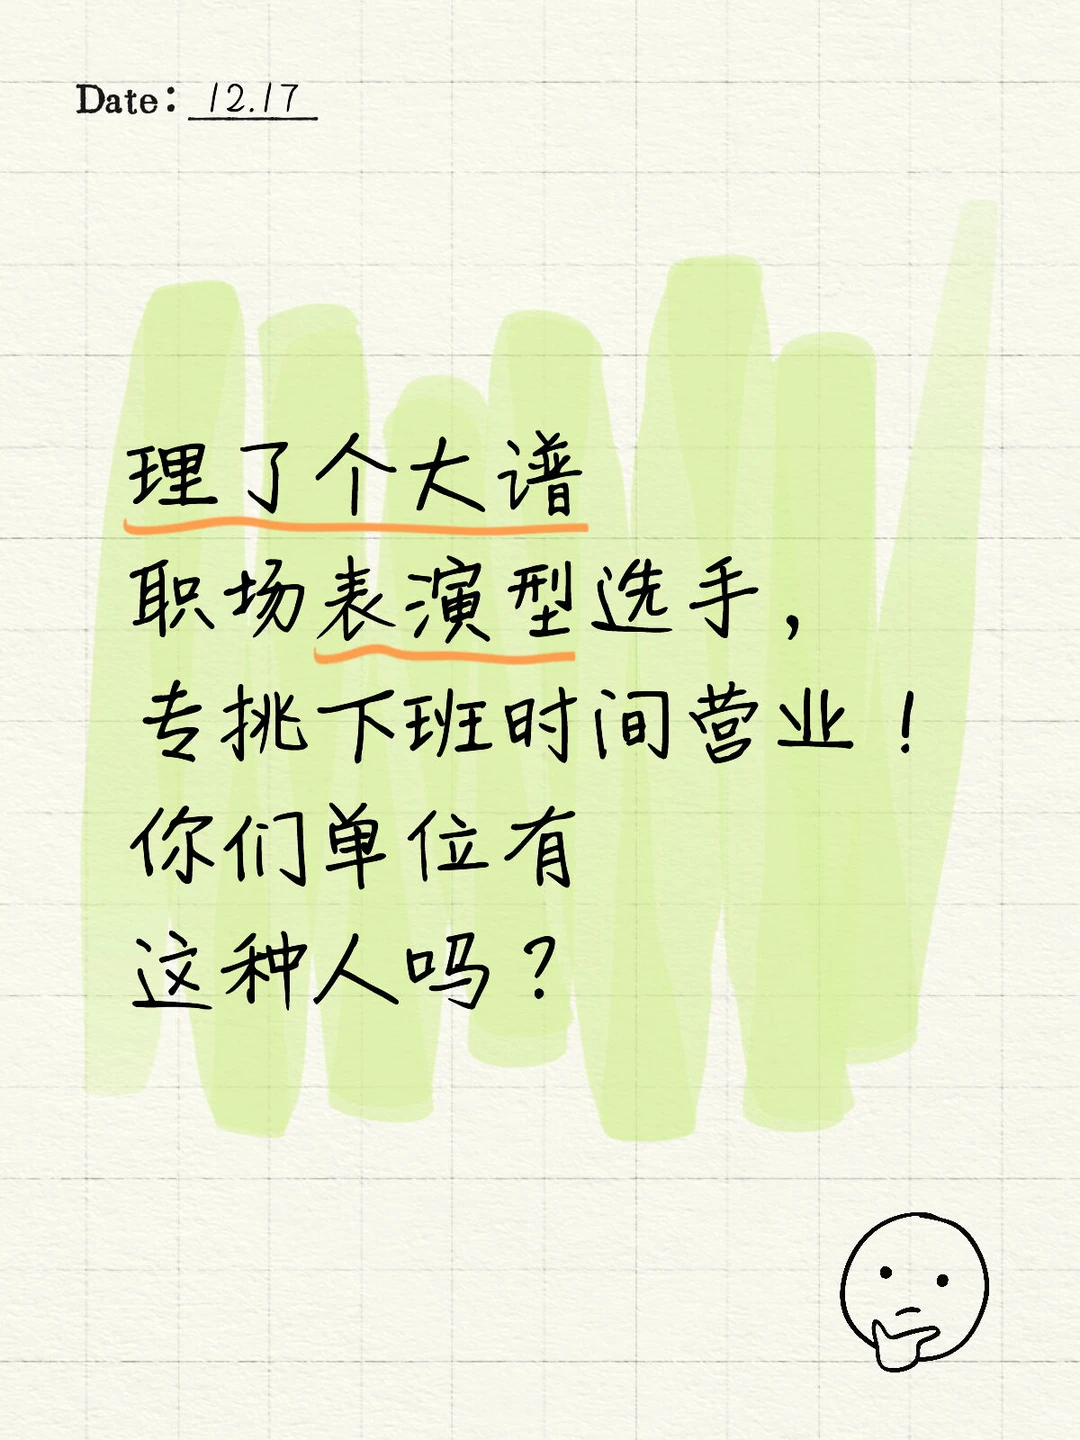 Date: 12.17
理了个大谱
职场表演型选手，
专挑下班时间营业！
你们单位有
这种人吗？